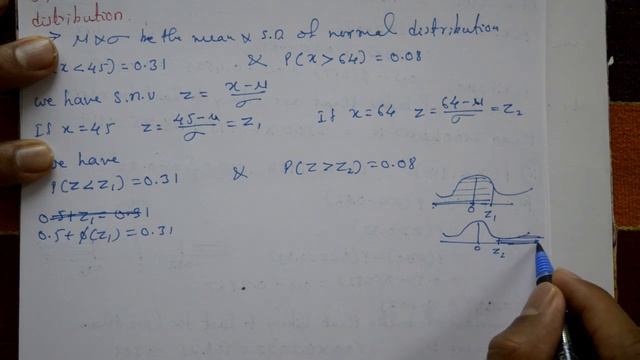 distribution.
→ μ & σ be the mean & S.D of normal distribution
(x<45) = 0.31 & P(x>64) = 0.08
we have S.N.V z = x-μ/σ
If x=45 z = 45-μ/σ = z₁ If x=64 z = 64-μ/σ = z₂
we have
P(z<z₁) = 0.31 & P(z>z₂) = 0.08
0.5+z₁ = 0.31
0.5+φ(z₁) = 0.31
0 z₁
0 z₂